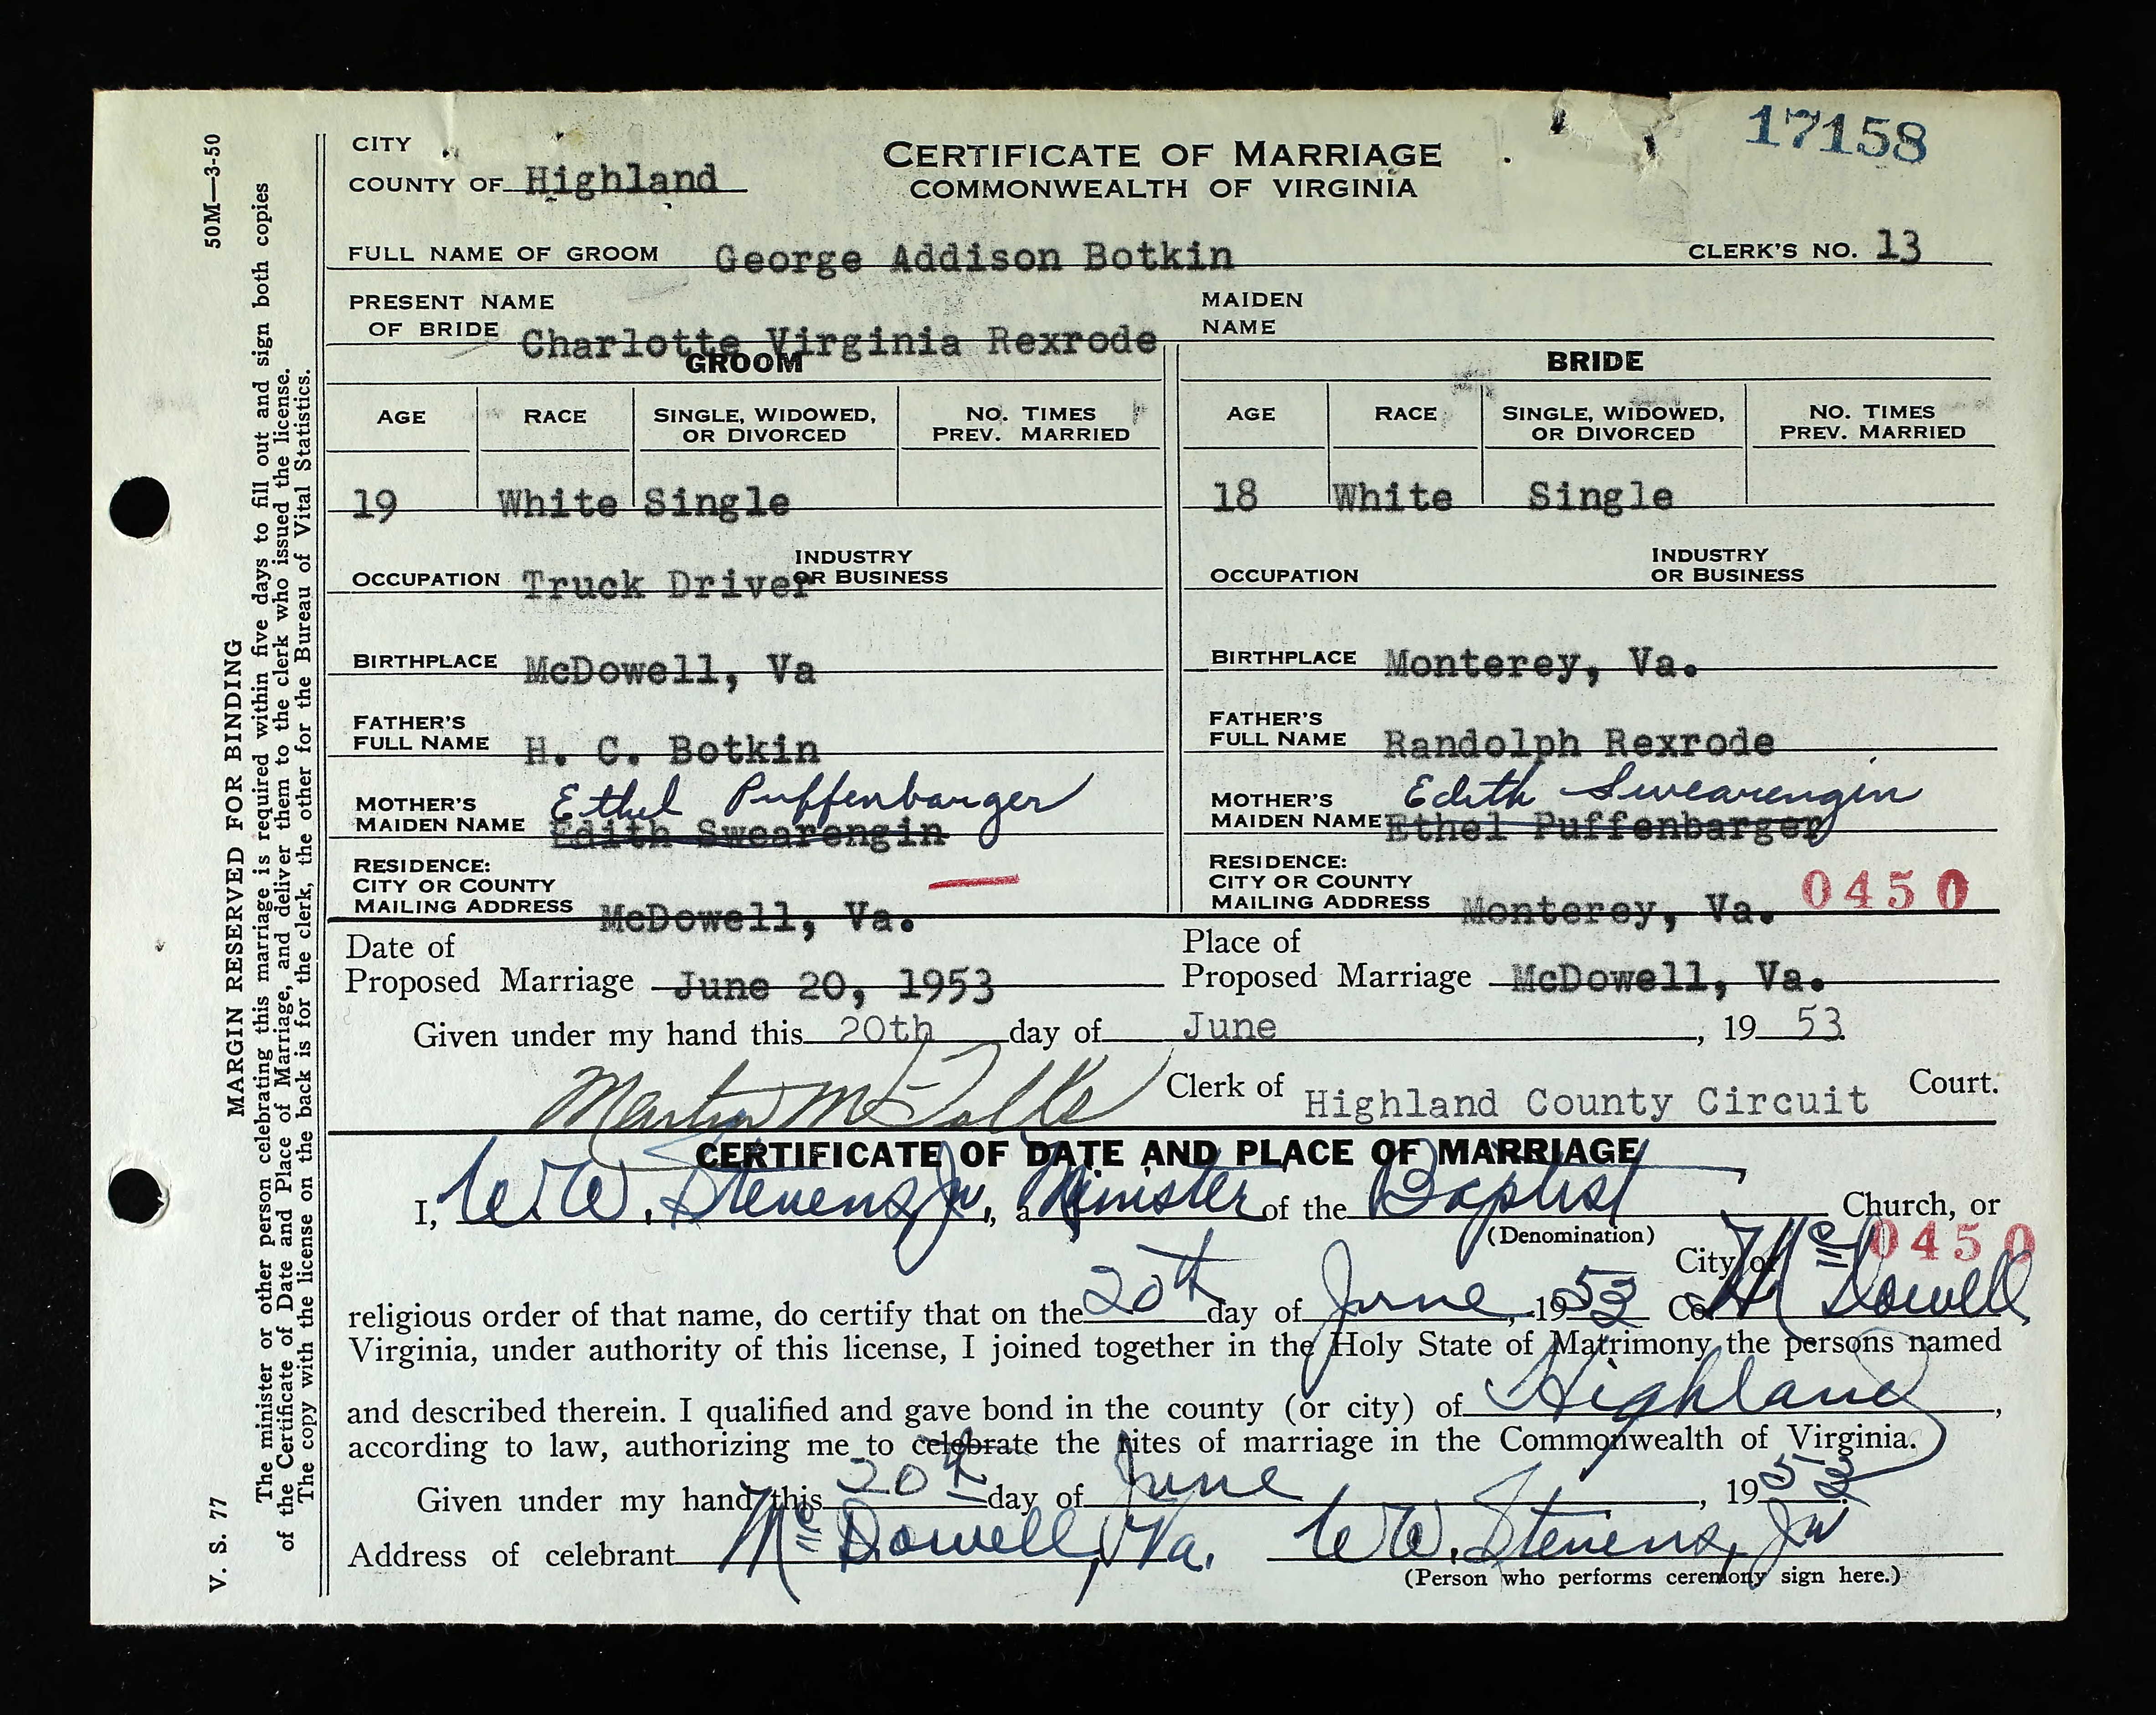 17158
CITY
COUNTY OF Highland
CERTIFICATE OF MARRIAGE
COMMONWEALTH OF VIRGINIA
FULL NAME OF GROOM George Addison Botkin CLERK'S NO. 13
PRESENT NAME OF BRIDE Charlotte Virginia Rexrode MAIDEN NAME
GROOM
AGE RACE SINGLE, WIDOWED, OR DIVORCED NO. TIMES PREV. MARRIED
19 White Single
OCCUPATION Truck Driver INDUSTRY OR BUSINESS
BIRTHPLACE McDowell, Va
FATHER'S FULL NAME H. C. Botkin
Ethel Puffenbarger
MOTHER'S MAIDEN NAME Edith Swearengin
RESIDENCE:
CITY OR COUNTY
MAILING ADDRESS McDowell, Va.
BRIDE
AGE RACE SINGLE, WIDOWED, OR DIVORCED NO. TIMES PREV. MARRIED
18 White Single
OCCUPATION INDUSTRY OR BUSINESS
BIRTHPLACE Monterey, Va.
FATHER'S FULL NAME Randolph Rexrode
Edith Swearengin
MOTHER'S MAIDEN NAME Ethel Puffenbarger
RESIDENCE:
CITY OR COUNTY 0450
MAILING ADDRESS Monterey, Va.
Date of Proposed Marriage June 20, 1953 Place of Proposed Marriage McDowell, Va.
Given under my hand this 20th day of June, 19 53
Clerk of Highland County Circuit Court.
CERTIFICATE OF DATE AND PLACE OF MARRIAGE
I, W. W. Stevens, Jr., a Minister of the Baptist Church, or
(Denomination)
0450
City of
religious order of that name, do certify that on the 20th day of June, 1953 Co McDowell
Virginia, under authority of this license, I joined together in the Holy State of Matrimony the persons named
and described therein. I qualified and gave bond in the county (or city) of Highland,
according to law, authorizing me to celebrate the rites of marriage in the Commonwealth of Virginia.
Given under my hand this 20th day of June, 1953
Address of celebrant McDowell, Va. W. W. Stevens, Jr
(Person who performs ceremony sign here.)
V. S. 77 MARGIN RESERVED FOR BINDING 50M—3-50
The minister or other person celebrating this marriage is required within five days to fill out and sign both copies
of the Certificate of Date and Place of Marriage, and deliver them to the clerk who issued the license.
The copy with the license on the back is for the clerk, the other for the Bureau of Vital Statistics.